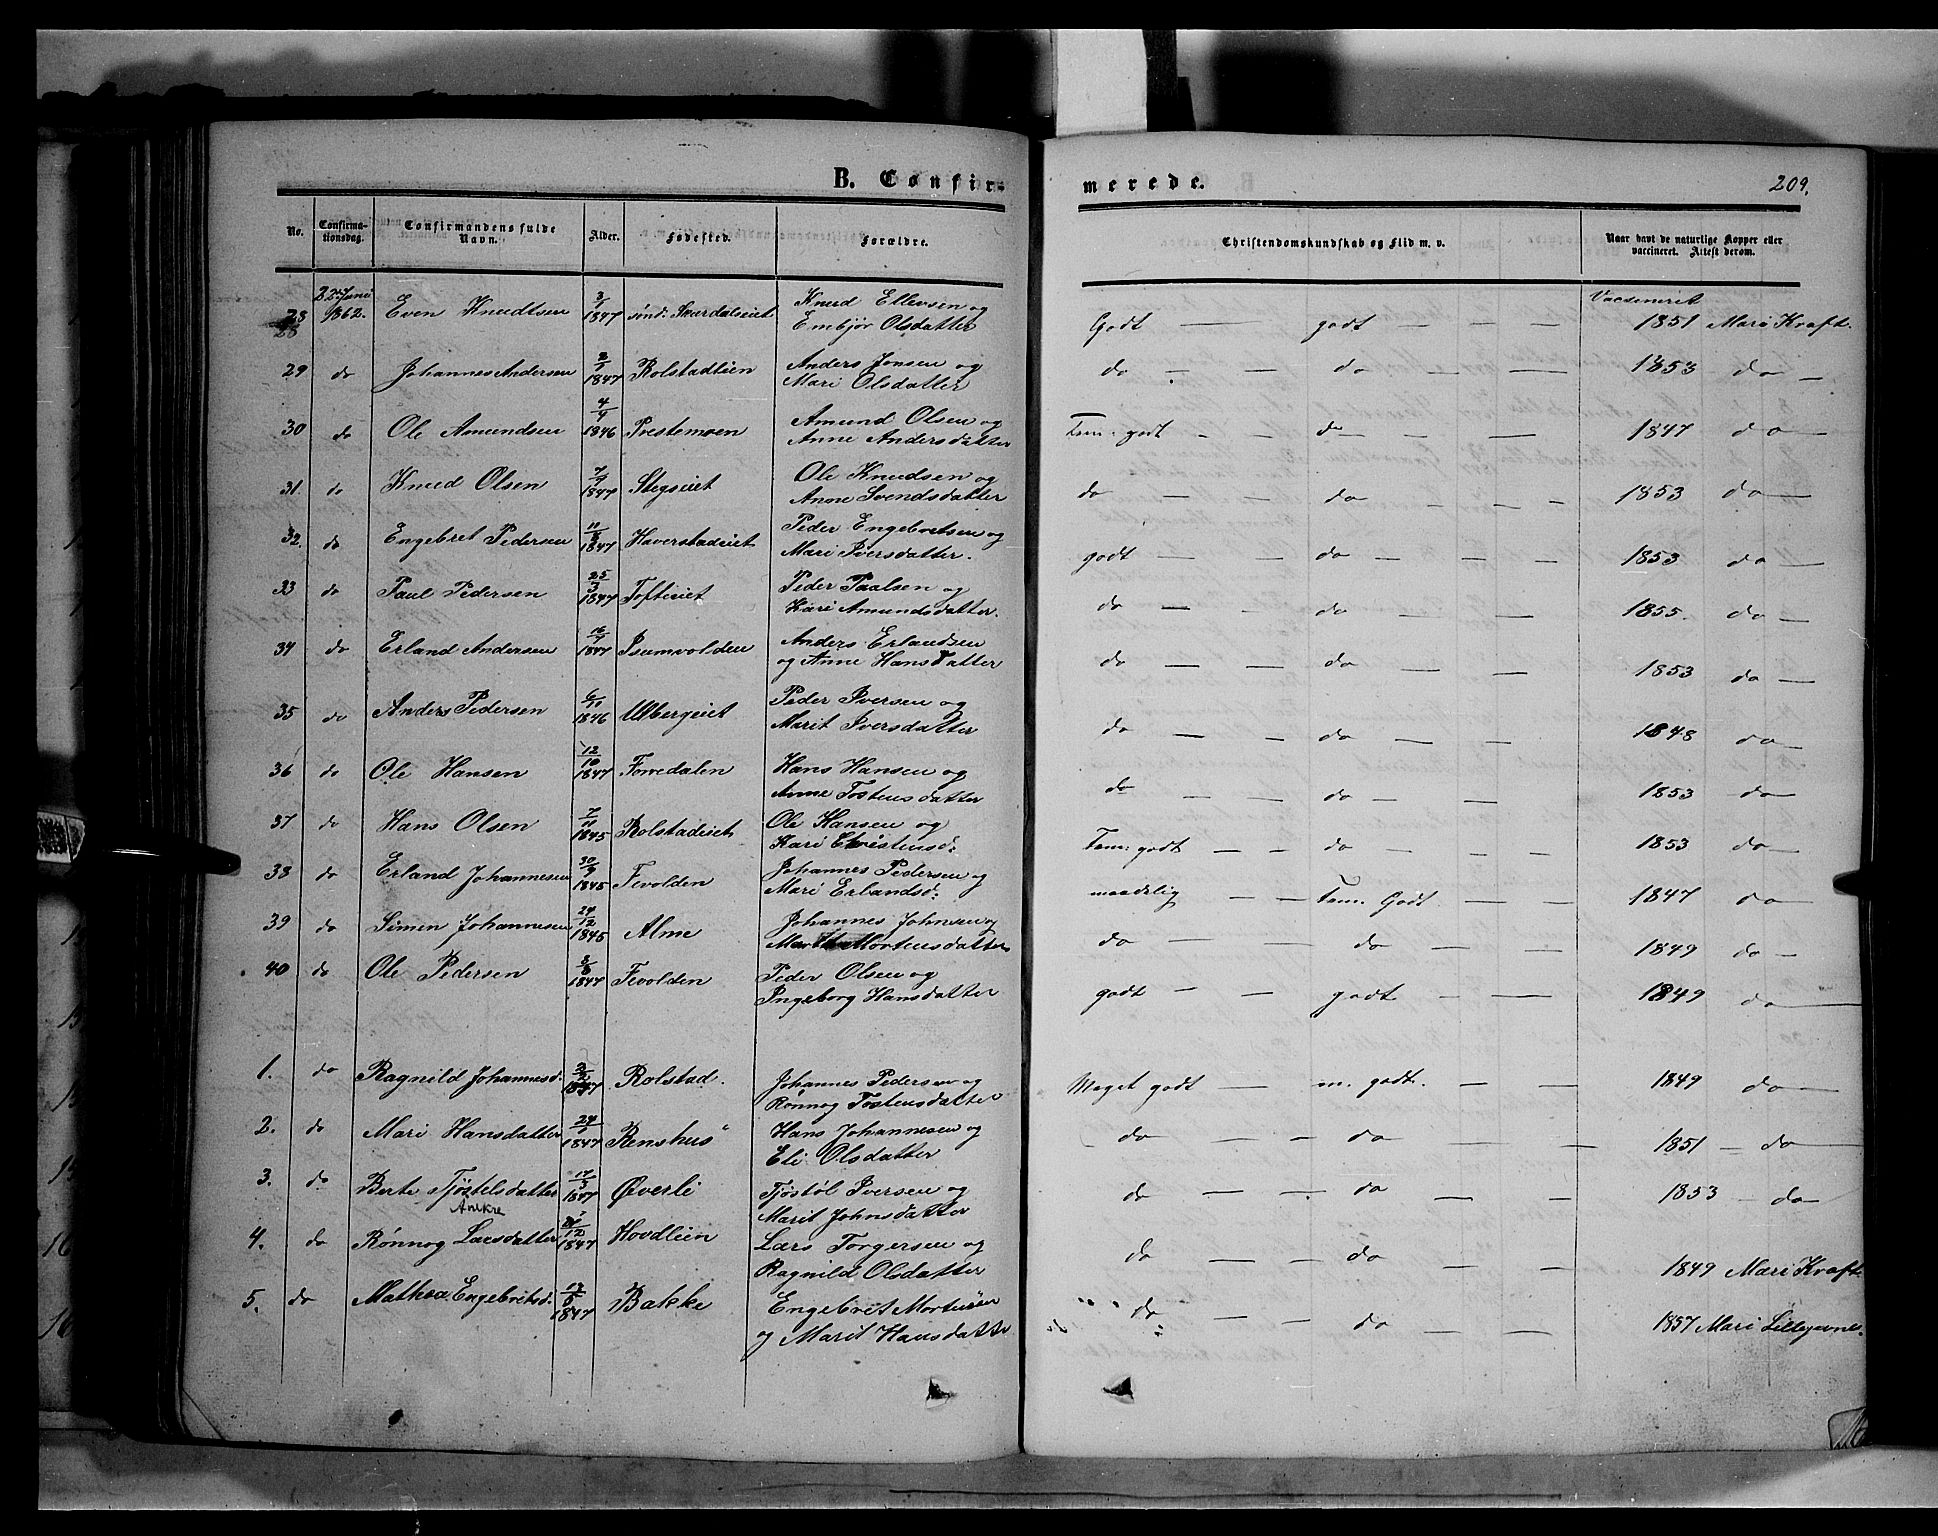 B. Confir-
merede.
209.
No.
Confirma-
tionsdag.
Confirmandens fulde
Navn.
Alder.
Fødested.
Forældre.
Christendomskundskab og Flid m. v.
Naar havt de naturlige Kopper eller
vaccineret. Attest derom.
28 22 Juni 1862. Even Knudtsen 3/1 1847 sønd: Skurdaleiet Knud Ellevsen og
Embjør Olsdatter Godt — godt — Vacsineret 1851 Mari Kraft.
29 do Johannes Andersen 2/1 1847 Rolstadlien Anders Jonsen og
Mari Olsdatter do — do — 1853 do —
30 do Ole Amundsen 4/9 1846 Prestemoen Amund Olsen og
Anne Andersdatter Tem: godt — do — 1847 do —
31. do Knud Olsen 7/7 1847 Stegseiet Ole Knudsen og
Anne Svendsdatter do — do — 1853 do —
32. do Engebret Pedersen 11/8 1847 Haverstadeiet Peder Engebretsen og
Mari Iversdatter. godt — do — 1853 do —
33 do Paul Pedersen 25/3 1847 Tofteeiet Peder Paalsen og
Kari Amundsdatter. do — do — 1855. do —
34 do Erland Andersen 1847 Isumvolden Anders Erlandsen
og Anne Hansdatter do — do — 1853 do —
35 do Anders Pedersen 6/11 1846 Ulbergeiet Peder Iversen og
Marit Iversdatter do — do — 1848 do —
36 do Ole Hansen 12/10 1847 Forredalen Hans Hansen og
Anne Tostensdatter do — do — 1853 do —
37 do Hans Olsen 7/11 1845 Rolstadeiet Ole Hansen og
Kari Christensd: Tem: godt — do — 1853 do —
38 do Erland Johannesen 30/9 1845 Fevolden Johannes Pedersen og
Mari Erlandsd: maadelig — Tem. Godt — 1847 do —
39 do Simen Johannesen 24/12 1845 Alme Johannes Johnsen og
Marthe Mortensdatter do — do — 1849 do —
40 do Ole Pedersen 3/8 1847 Fevolden Peder Olsen og
Ingeborg Hansdatter godt — godt — 1849 do —
1. do Ragnild Johannesd: 3/2 1847 Rolstad. Johannes Pedersen og
Rønnog Tostensdatter Meget godt — m. godt. — 1849 do —
2. do Mari Hansdatter 24/1 1847 Renshus" Hans Johannesen og
Eli Olsdatter do — do — 1851 — do —
3. do Berte Tjøstelsdatter 17/3 1847 Øverli Tjøstøl Iversen og
Marit Johnsdatter do — do — 1853 — do
4. do Rønnog Larsdatter 1847 Hovdleien Lars Torgersen og
Ragnild Olsdatter do — do — 1849 Mari Kraft
5. do Mathea Engebretsd. 1847 Bakke Engebret Mortensen
og Marit Hansdatter do — do — 1857 Mari Lillegevnes.